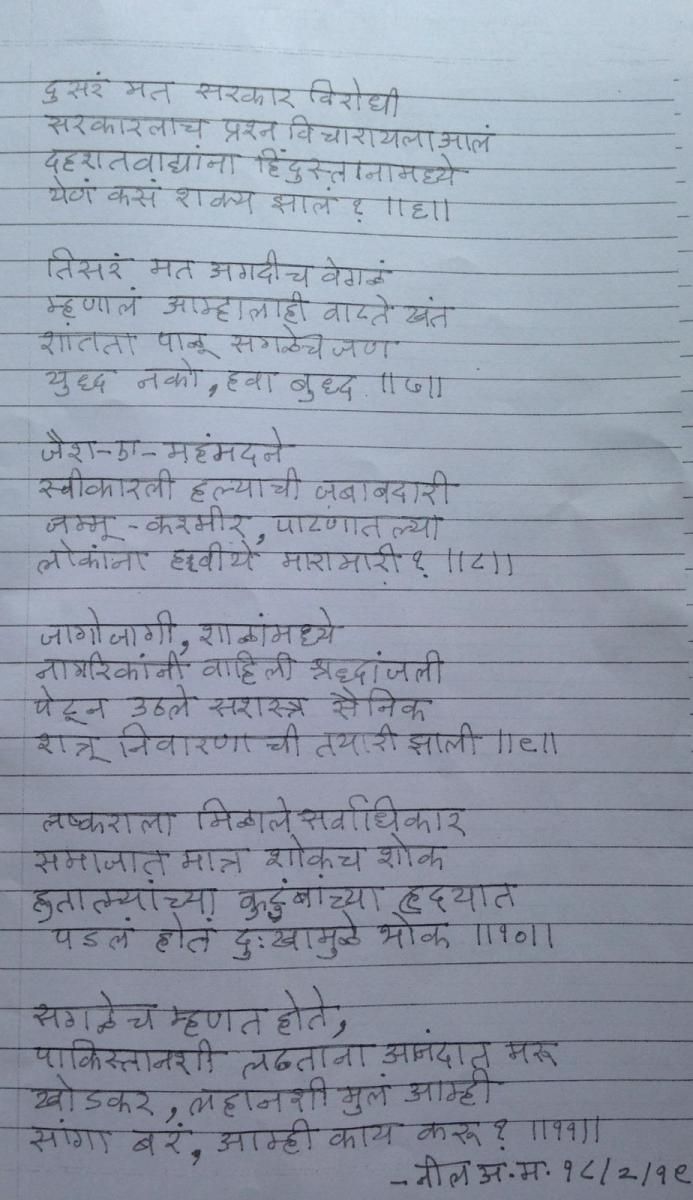 दुसरं मत सरकार विरोधी
सरकारलाच प्रश्न विचारायला आलं
दहशतवाद्यांना हिंदुस्तानामध्ये
येणं कसं शक्य झालं? ॥६॥
तिसरं मत अगदीच वेगळं
म्हणालं आम्हालाही वाटते खंत
शांतता पाळू सगळेच जण
युध्द नको, हवा बुध्द ॥७॥
जैश-ए-महंमदने
स्वीकारली हल्याची जबाबदारी
जम्मू-कश्मीर, पाटणातल्या
लोकांना हवीये मारामारी? ॥८॥
जागोजागी, शाळांमध्ये
नागरिकांनी वाहिली श्रध्दांजली
पेटून उठले सशस्त्र सैनिक
शत्रू निवारणाची तयारी झाली ॥९॥
लष्कराला मिळाले सर्वाधिकार
समाजात मात्र शोकच शोक
हुतात्म्यांच्या कुटुंबांच्या हृदयात
पडलं होतं दुःखामुळे भोक ॥१०॥
सगळेच म्हणत होते,
पाकिस्तानशी लढताना आनंदात मरू
खोडकर, लहानशी मुलं आम्ही
सांगा बरं, आम्ही काय करू? ॥११॥
- नील अ. म. १८/२/१९